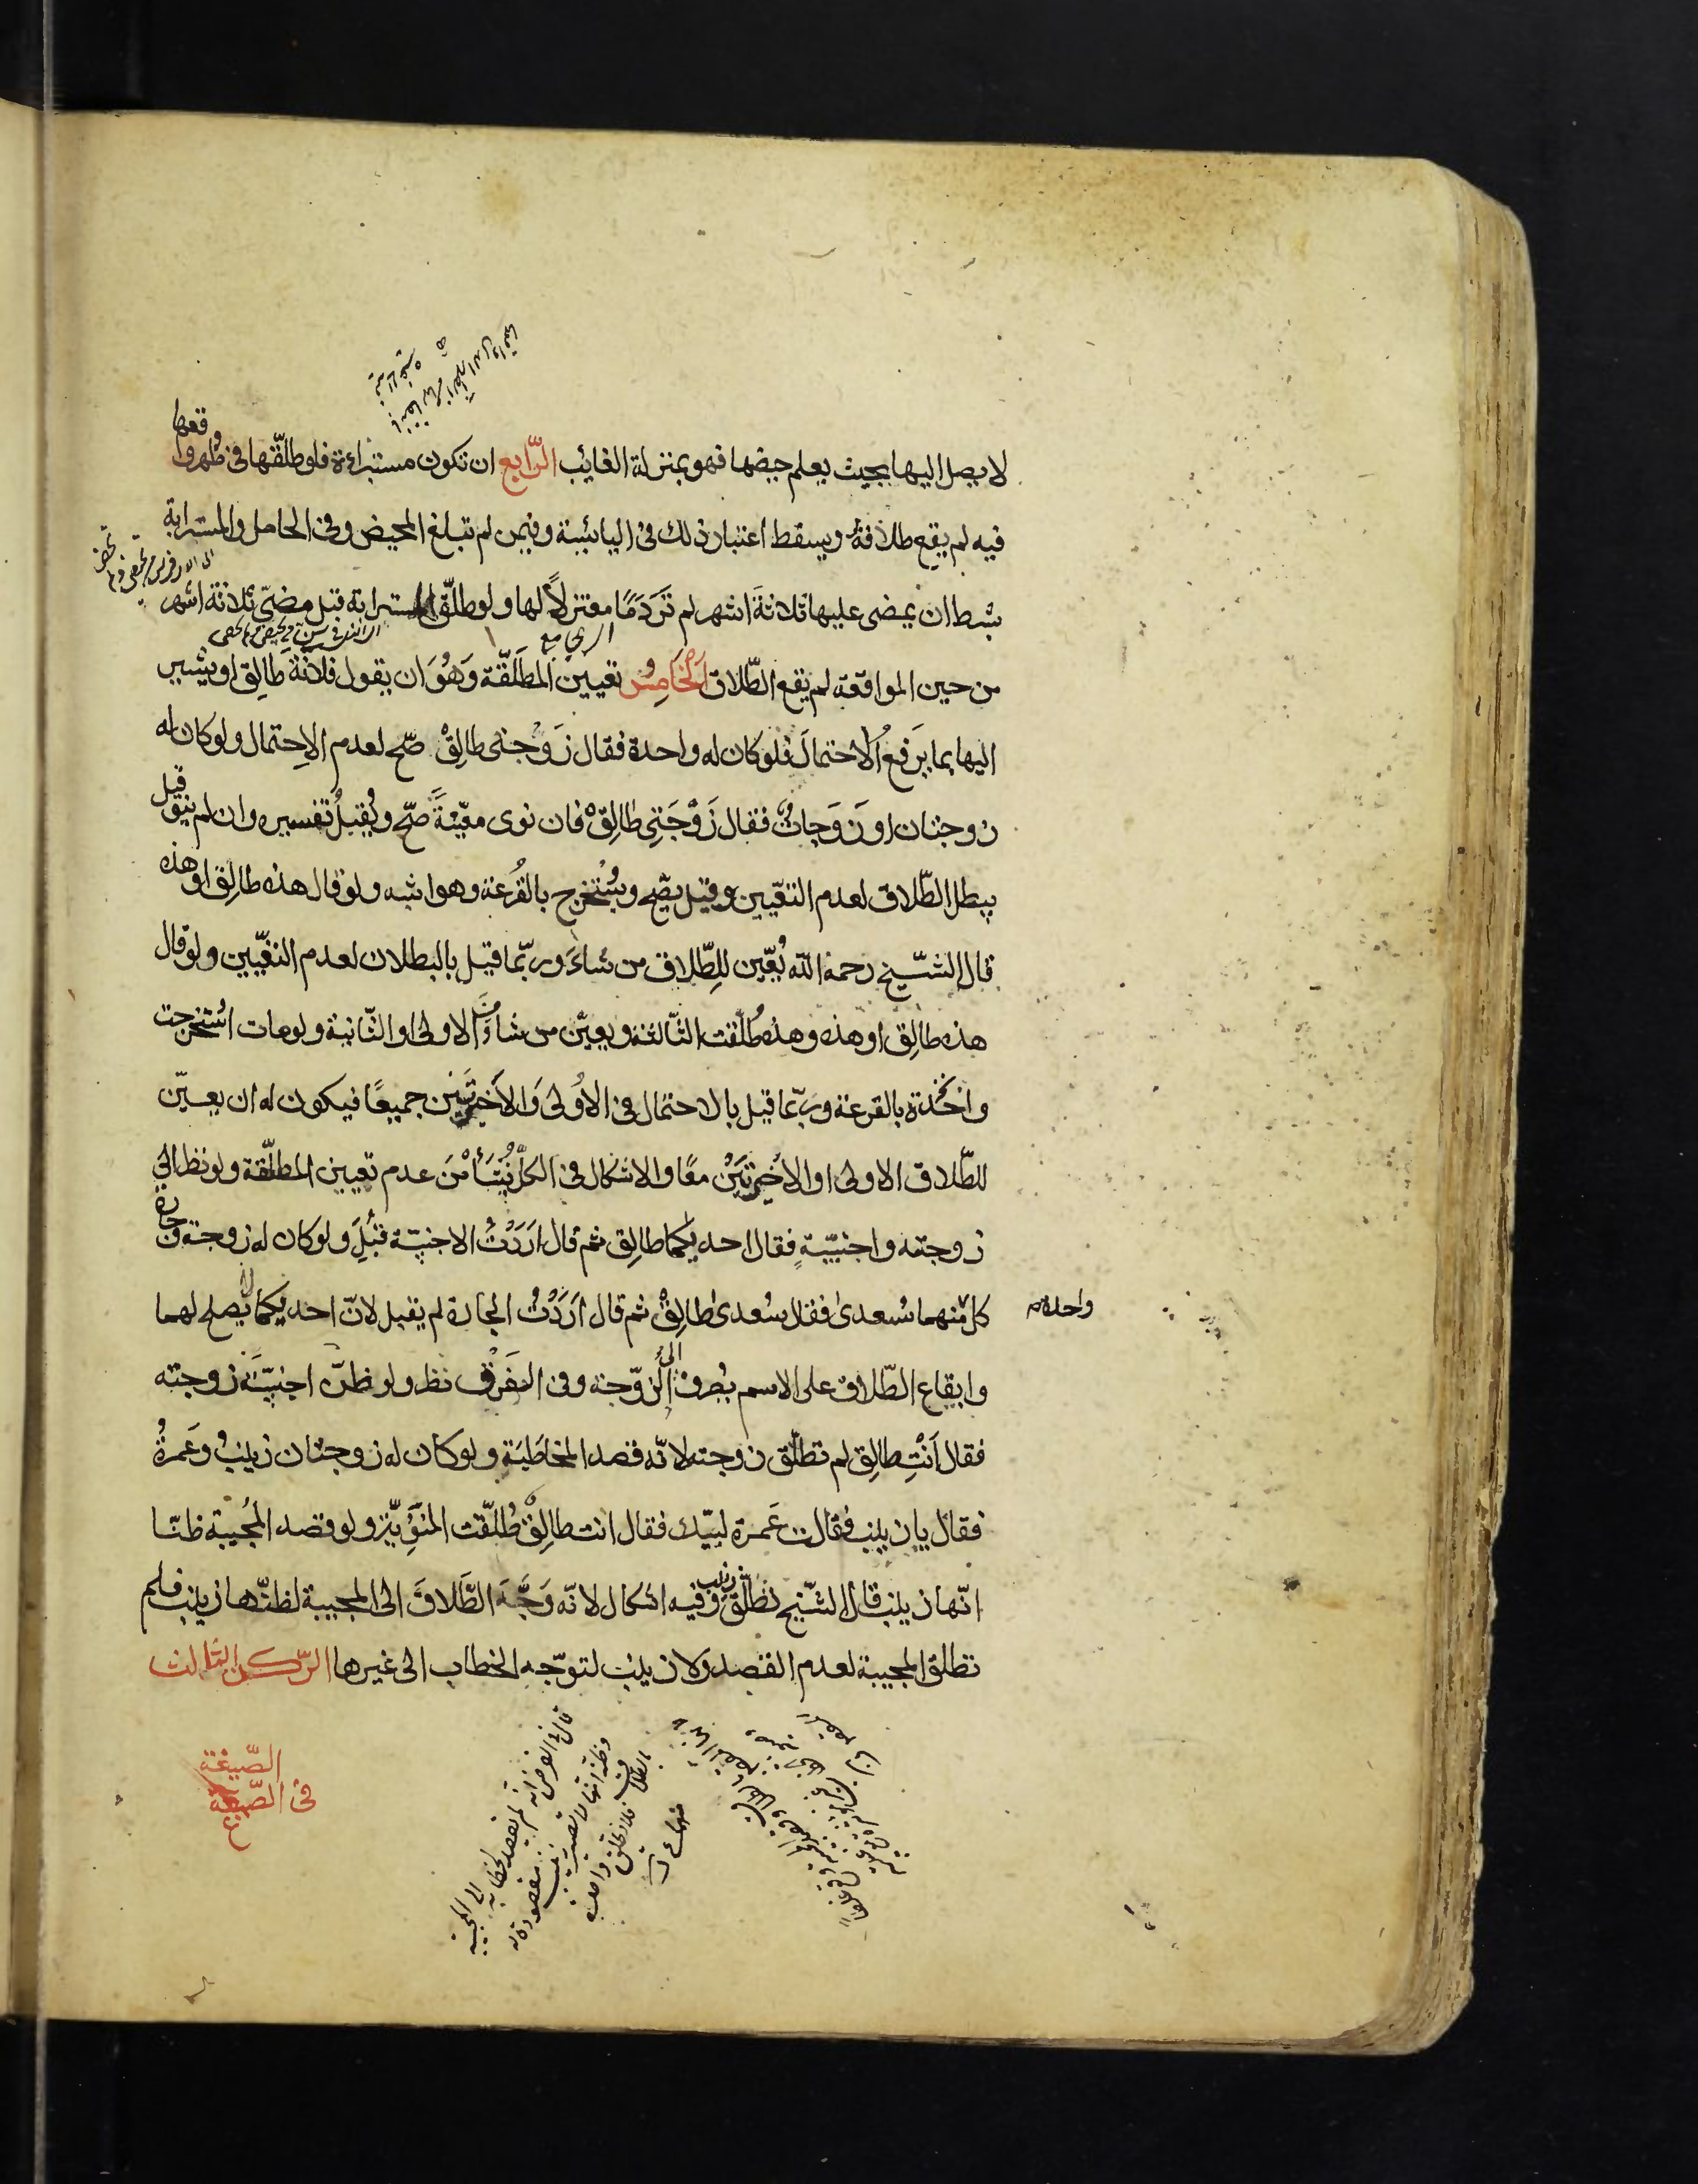 لا يصل اليها بحيث يعلم حيضها فهو بمنزلة الغائب الرّابع ان تكون مستبراءة فلو طلّقها فى طهر واقعها
فيه لم يقع طلاقهُ ويسقط اعتبار ذلك فى اليائسة وفيمن لم تبلغ المحيض وفى الحامل والمسترابة
بشرط ان يمضى عليها ثلاثةَ اشهر لم تَرَ دَمًا معتزلاً لها ولو طلّق المسترابه قبل مضىّ ثلاثة اشهر
من حين المواقعة لم يقع الطّلاق الخَامِسُ تعيين المطَلَّقة وَهُوَ ان يقول فلانة طالِق او يشير
اليها بما يَرفعُ الاحتمالَ فلو كان له واحدة فقال زَوْجتى طالِقْ صّح لعدم الاِحتمال ولو كان له
زوجتان او زَوَجاتٌ فقال زَوْجَتِى طالِقْ فان نوى معيّنةً صحّ ويُقبلُ تفسيره وان لم ينوِ قيل
يبطل الطّلاق لعدم التعّيين وقيل يصّح ويُسْتخرج بالقُرعة وهو اشبه ولو قال هذه طالِق او هذه
قال الشّيخ رحمه الله يُعّين للِطّلاق من شاءَ وربّما قيل بالبطلان لعدم التعّيين ولو قال
هذه طالِق او هذه وهذه طُلّقت الثّالثة ويعيّن من شاءَ مِنَ الاولى او الثّانية ولو مات استُخرجت
واحْدة بالقرعة وربّما قيل بالاحتمال فى الاُولى وَالاَخيرتَيْن جميعًا فيكون له ان يعيّن
للطّلاق الاولى او الاخيرتَيْن معًا والاشكال فى الكلّ يَنْشَأُ مْنَ عدم تعيين المطلّقة ولو نظر الى
زوجته واجنبيّةٍ فقال احديكما طالِق ثم قال اَرَدْتُ الاجنبيّة قُبِلَ ولو كان له زوجة وجارة
كلّ منهما سُعدىٰ فقال سُعدىٰ طالِقْ ثم قال اَرَدْتُ الجارة لم يقبل لانّ احديكما يصلح لهما
واحدة
وايقاع الطّلاق على الاسم يُصرف الى الزوّجة وفى الفَرْق نظر ولو ظنّ اجنبيّةً زوجته
فقال اَنْتِ طالِق لم تطلّق زوجته لانّه قصد المخاطَبَة ولو كان له زوجتان زينبُ وعَمرةُ
فقال يا زينب فقالت عَمرة لبيّك فقال انت طالِقْ طُلّقت المَنْوِيّة ولو قصد المُجيبة ظنّا
انّها زينب قال الشّيخ تطلّق زينب وفيه اشكال لانّه وَجَّهَ الطَّلاقَ الى المجيبة لظنّها زينب فلم
تطلق المجيبة لعدم القصد ولا زينب لتوّجه الخطاب الى غيرها الرّكن الثالث
الصّيغة
فى الصّيغة